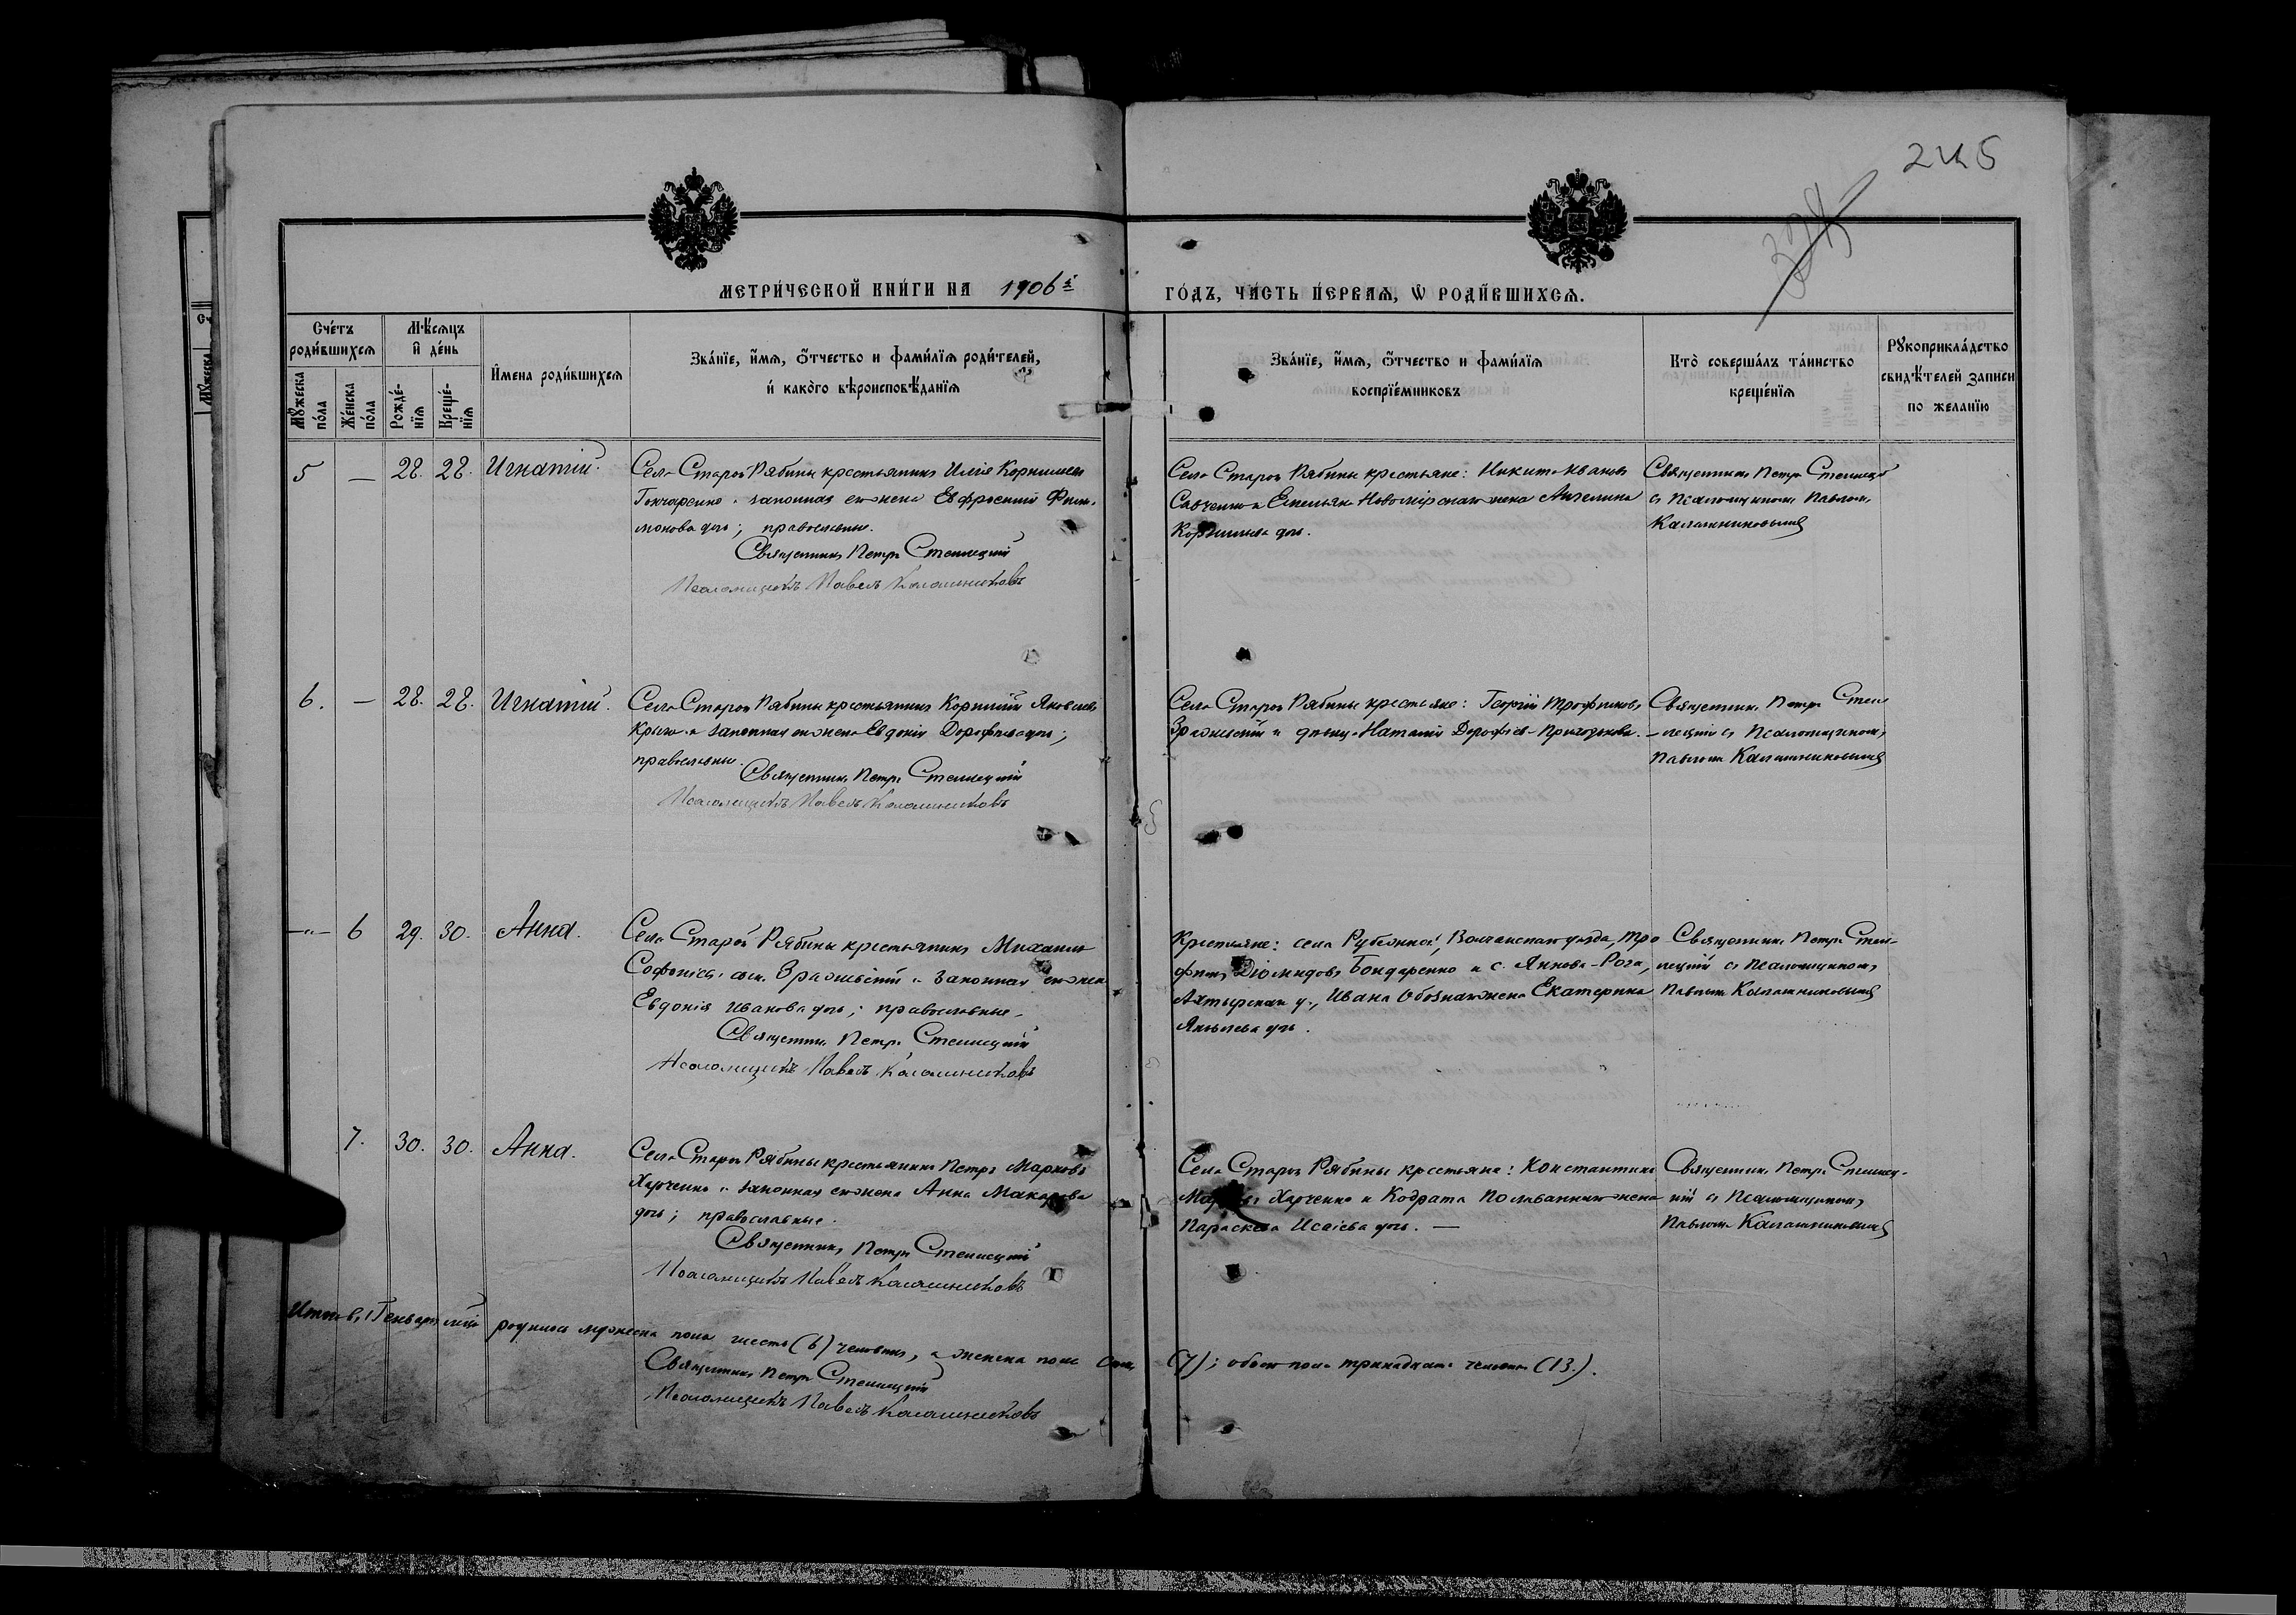 245
МЕТРИ́ЧЕСКОЙ КНИ́ГИ НА 1906й
ГО́ДЪ, ЧА́СТЬ ПЕ́РВАѦ, Ѡ РОДИ́ВШИХСѦ.
Сче́тъ роди́вшихсѧ
Мꙋ́жеска по́ла
Же́нска по́ла
Мѣ́сѧцъ и҆ де́нь
Рожде́-нїѧ
Креще́-нїѧ
И҆мена роди́вшихсѧ
Зва́нїе, и҆́мѧ, ѻ҆́тчество и фами́лїѧ роди́телей,
и҆ како́гѡ вѣроисповѣ́данїѧ
Зва́нїе, и҆́мѧ, ѻ҆́тчество и фами́лїѧ
воспрїе́мниковъ
Кто̀ соверша́лъ та́инство
креще́нїѧ
Рꙋкоприкла́дство
свидѣ́телей за́писи
по жела́нїю
5 — 28. 28. Игнатій.
Села Старой Рябины крестьянинъ Илія Корнилiевъ
Гончаренко и законная его жена Евфросинія Фили-
монова дочь; православные.
Священникъ Петръ Стеллецкій
Псаломщикъ Павелъ Калашниковъ
Села Старой Рябины крестьяне: Никита Ивановъ
Савченко и Емельяна Новомірскаго жена Ангелина
Корнилiева дочь.
Священникъ Петръ Стеллецкій
съ Псаломщикомъ Павломъ
Калашниковымъ
6. — 28. 28. Игнатій.
Села Старой Рябины крестьянинъ Корнилій Яковлевъ
и законная его жена Евдокія Дорофеева дочь;
православные.
Священникъ Петръ Стеллецкій
Псаломщикъ Павелъ Калашниковъ
Села Старой Рябины крестьяне: Георгій Трофимовъ
Зражевскій и дѣвица Наталія Дорофіева Приходькова.
Священникъ Петръ Стел-
лецкій съ Псаломщикомъ
Павломъ Калашниковымъ
—"— 6 29. 30. Анна.
Села Старой Рябины крестьянинъ Михаилъ
Софоніевъ сынъ Зражевскій и законная его жена
Евдокія Иванова дочь; православные.
Священникъ Петръ Стеллецкій
Псаломщикъ Павелъ Калашниковъ
Крестьяне: села Рубежной, Волчанскаго уѣзда, Тро-
фимъ Діомидовъ Бондаренко и с. Янкова-Рога,
Ахтырскаго у., Ивана жена Екатерина
Яковлева дочь.
Священникъ Петръ Стел-
лецкій съ Псаломщикомъ
Павломъ Калашниковымъ
7. 30. 30. Анна.
Села Старой Рябины крестьянинъ Петръ Марковъ
Харченко и законная его жена Анна Макарова
дочь; православные.
Священникъ Петръ Стеллецкій
Псаломщикъ Павелъ Калашниковъ
Села Старой Рябины крестьяне: Константинъ
Марковъ Харченко и Кодрата жена
Параскева Исаіева дочь. —
Священникъ Петръ Стеллец-
кій съ Псаломщикомъ
Павломъ Калашниковымъ
Итого въ Генварѣ мцѣ родилось мужеска пола шесть (6) человѣкъ, а женска пола семь (7); обоего пола тринадцать человѣкъ (13.).
Священникъ Петръ Стеллецкій
Псаломщикъ Павелъ Калашниковъ